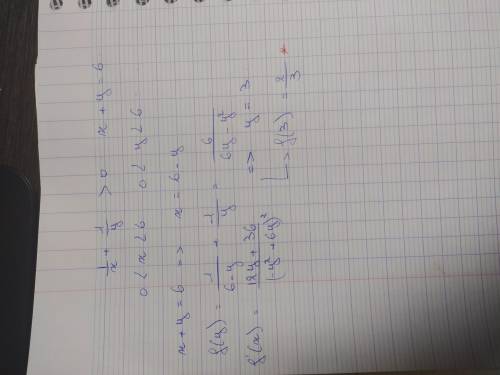 1/x + 1/y > 0 x + y = 6
0 < x < 6 0 < y < 6
x + y = 6 => x = 6 - y
f(y) = 1/(6-y) + 1/y = 6/(6y - y²)
f'(x) = (12y + 36)/(-y² + 6y)² => y = 3
↳ f(3) = 2/3 *